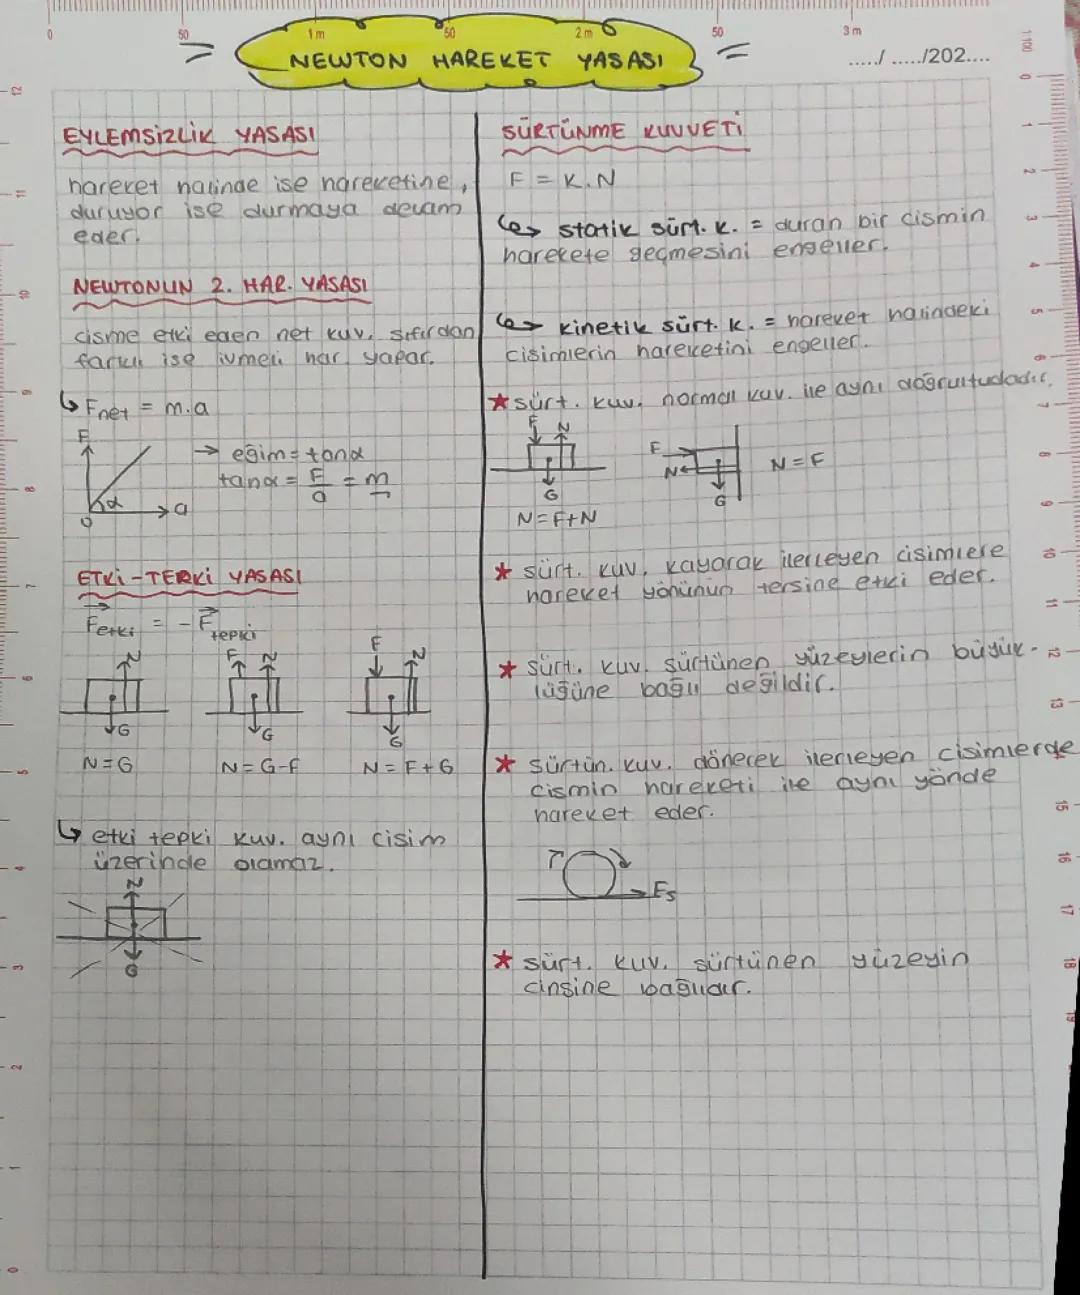 0 50 1m 50 2m 50 3m 1:100
NEWTON HAREKET YASASI
...../ ...../202....
EYLEMSİZLİK YASASI
hareket halinde ise hareketine,
duruyor ise durmaya devam
eder.
NEWTONUN 2. HAR. YASASI
cisme etki eden net kuv. sıfırdan
farklı ise ivmeli har yapar.
↳ Fnet = m.a
F
→ eğim = tanα
tanα = F/a = m
α
0
a
ETKİ-TEPKİ YASASI
Fetki = - Ftepki
N F N F N
G G G
N=G N=G-F N=F+G
↳ etki tepki kuv. aynı cisim
üzerinde olamaz.
N
G
SÜRTÜNME KUVVETİ
F = K.N
↳ statik sürt. k. = duran bir cismin
harekete geçmesini engeller.
↳ kinetik sürt. k. = hareket halindeki
cisimlerin hareketini engeller.
★ sürt. kuv. normal kuv. ile aynı doğrultudadır.
F N F
N N=F
G G
N=F+N
★ sürt. kuv. kayarak ilerleyen cisimlere
hareket yönünün tersine etki eder.
★ sürt. kuv. sürtünen yüzeylerin büyük-
lüğüne bağlı değildir.
★ sürtün. kuv. dönerek ilerleyen cisimlerde
cismin hareketi ile aynı yönde
hareket eder.
Fs
★ sürt. kuv. sürtünen yüzeyin
cinsine bağlıdır.